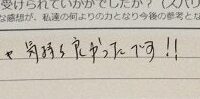 受けられていかがでしたか？（スバリ
な感想が、私達の何よりの力となり今後の参考とな
気持ち良かったです!!